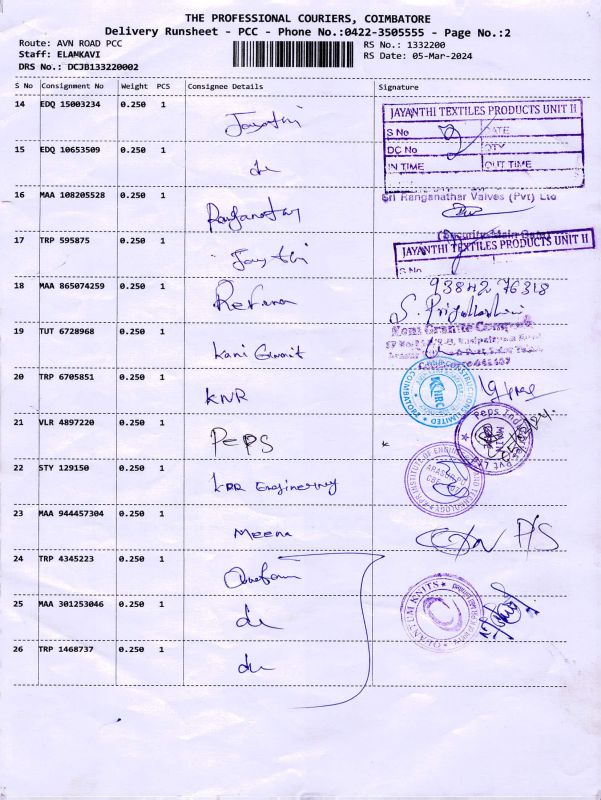 THE PROFESSIONAL COURIERS, COIMBATORE
Delivery Runsheet - PCC - Phone No.:0422-3505555 - Page No.:2
Route: AVN ROAD PCC
RS No.: 1332200
Staff: ELAMKAVI
RS Date: 05-Mar-2024
DRS No.: DCJB133220002
S No Consignment No Weight PCS Consignee Details Signature
14 EDQ 15003234 0.250 1 Jayathi
JAYANTHI TEXTILES PRODUCTS UNIT II
S No DATE
DC No QTY
IN TIME OUT TIME
15 EDQ 10653509 0.250 1 do
16 MAA 108205528 0.250 1 Ranganathar
Sri Ranganathar Valves (Pvt) Ltd
(Security Main Gate)
17 TRP 595875 0.250 1 Jayathi
JAYANTHI TEXTILES PRODUCTS UNIT II
S No
18 MAA 865074259 0.250 1
93842 76318
19 TUT 6728968 0.250 1 Kani Granit
Kani Granite Company
20 TRP 6705851 0.250 1 KNR
21 VLR 4897220 0.250 1 PEPS
22 STY 129150 0.250 1 KPR Engineering
23 MAA 944457304 0.250 1 Meena
24 TRP 4345223 0.250 1
25 MAA 301253046 0.250 1 do
QUANTUM KNITS
26 TRP 1468737 0.250 1 do